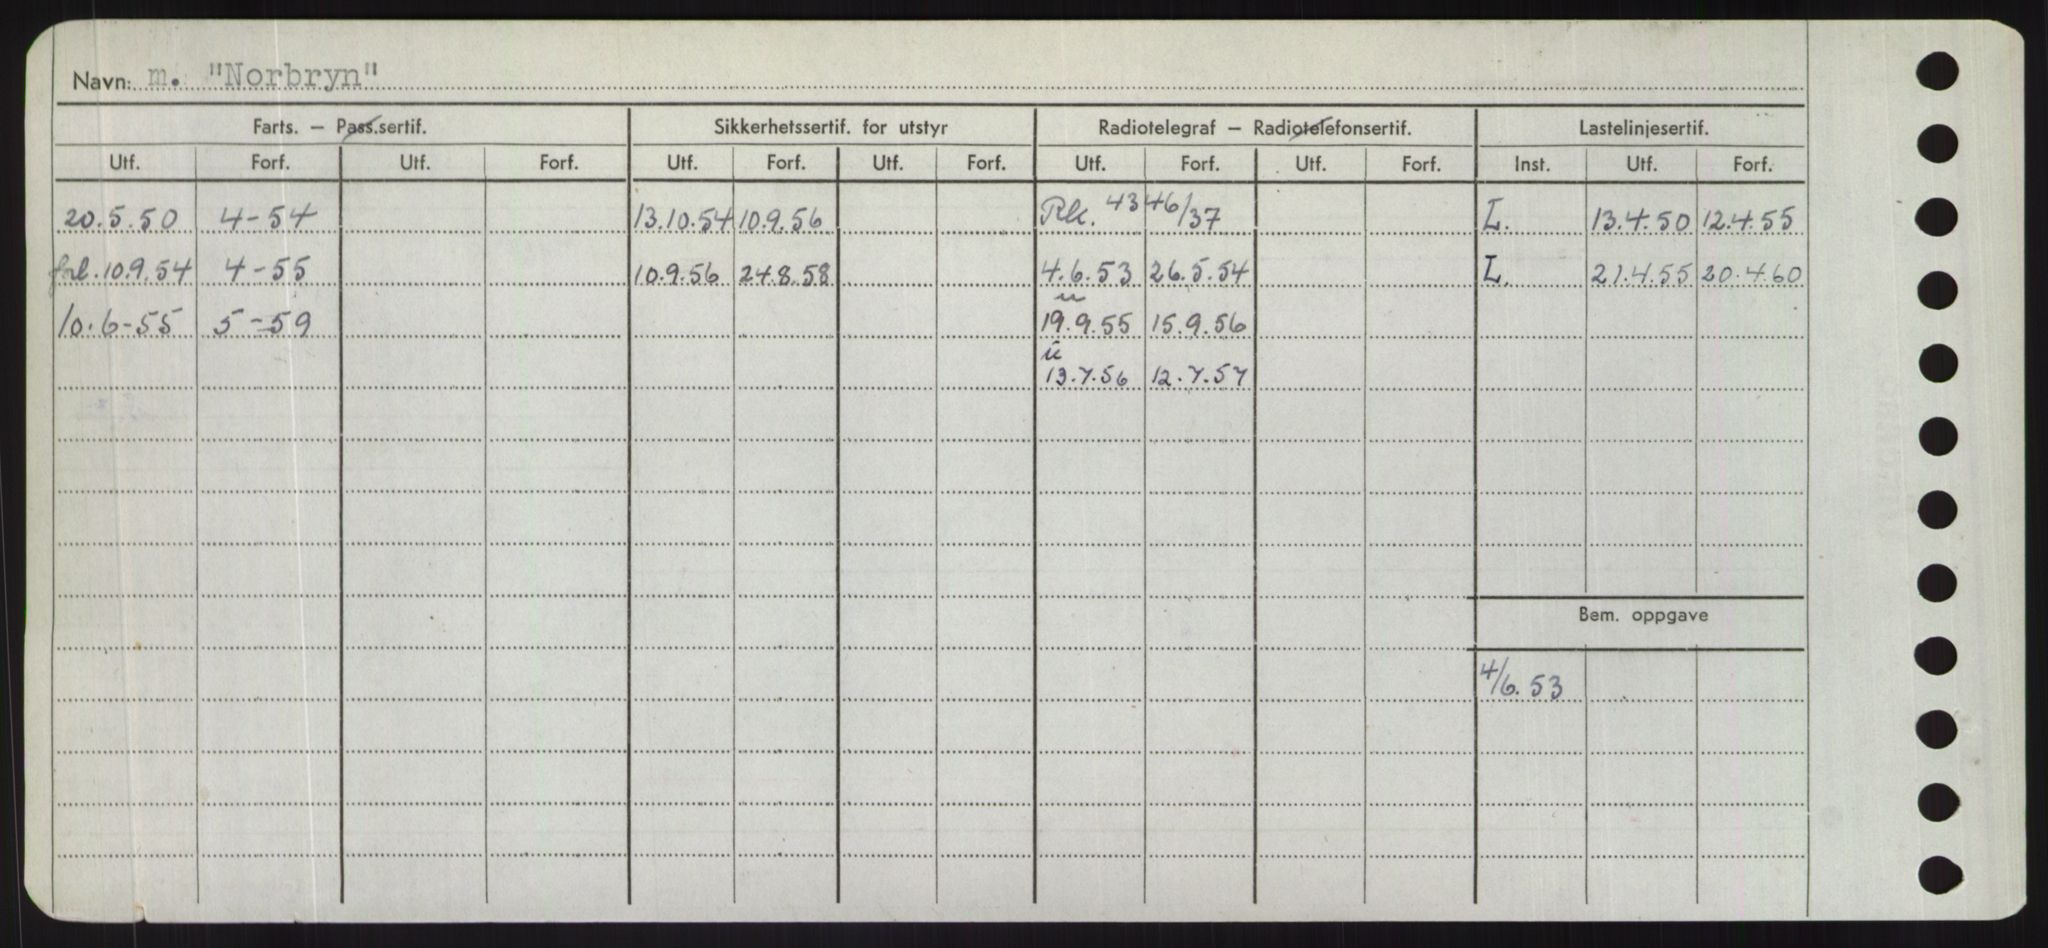 Navn: m. "Norbryn"
Farts. – Pass.sertif. Sikkerhetssertif. for utstyr Radiotelegraf – Radiotelefonsertif. Lastelinjesertif.
Utf. Forf. Utf. Forf. Utf. Forf. Utf. Forf. Utf. Forf. Utf. Forf. Inst. Utf. Forf.
20.5.50 4-54 13.10.54 10.9.56 Rk. 4346/37 L. 13.4.50 12.4.55
forl. 10.9.54 4-55 10.9.56 24.8.58 4.6.53 26.5.54 L. 21.4.55 20.4.60
u
10.6-55 5-59 19.9.55 15.9.56
u
13.7.56 12.7.57
Bem. oppgave
4/6.53